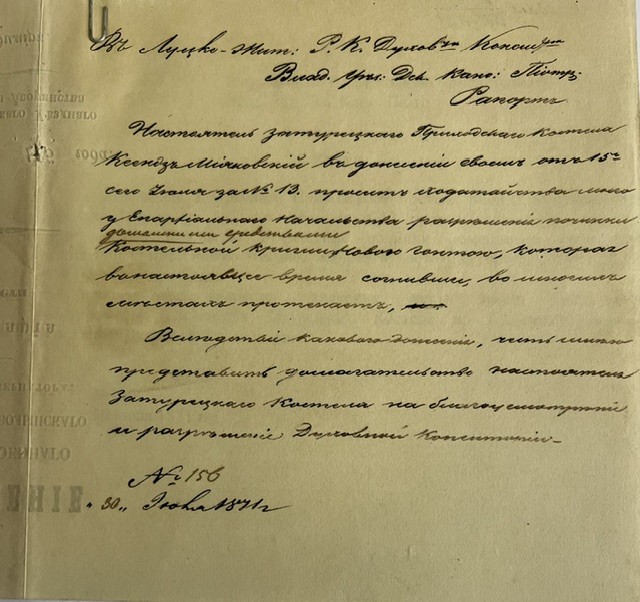 Въ Луцко-Жит: Р. К. Духовную Консисторію
Влад. Ур: Дек. Кано:
Рапортъ
Настоятель Затурецкаго Приходскаго Костела
Ксендзъ Мілковскій въ донесеніи своемъ отъ 15
сего Іюня за № 13. проситъ ходатайства моего
у Епархіальнаго Начальства разрѣшенія починки
домашними средствами
Костельной крыши новою гонтою, которая
въ настоящее время согнивши, во многихъ
мѣстахъ протекаетъ,
Вслѣдствіи каковаго донесенія, честь имѣю
представить домогательство настоятеля
Затурецкаго Костела на благоусмотрѣніе
и разрѣшеніе Духовной Консисторіи
№ 156
"30" Іюня 1871 г
ЕНІЕ